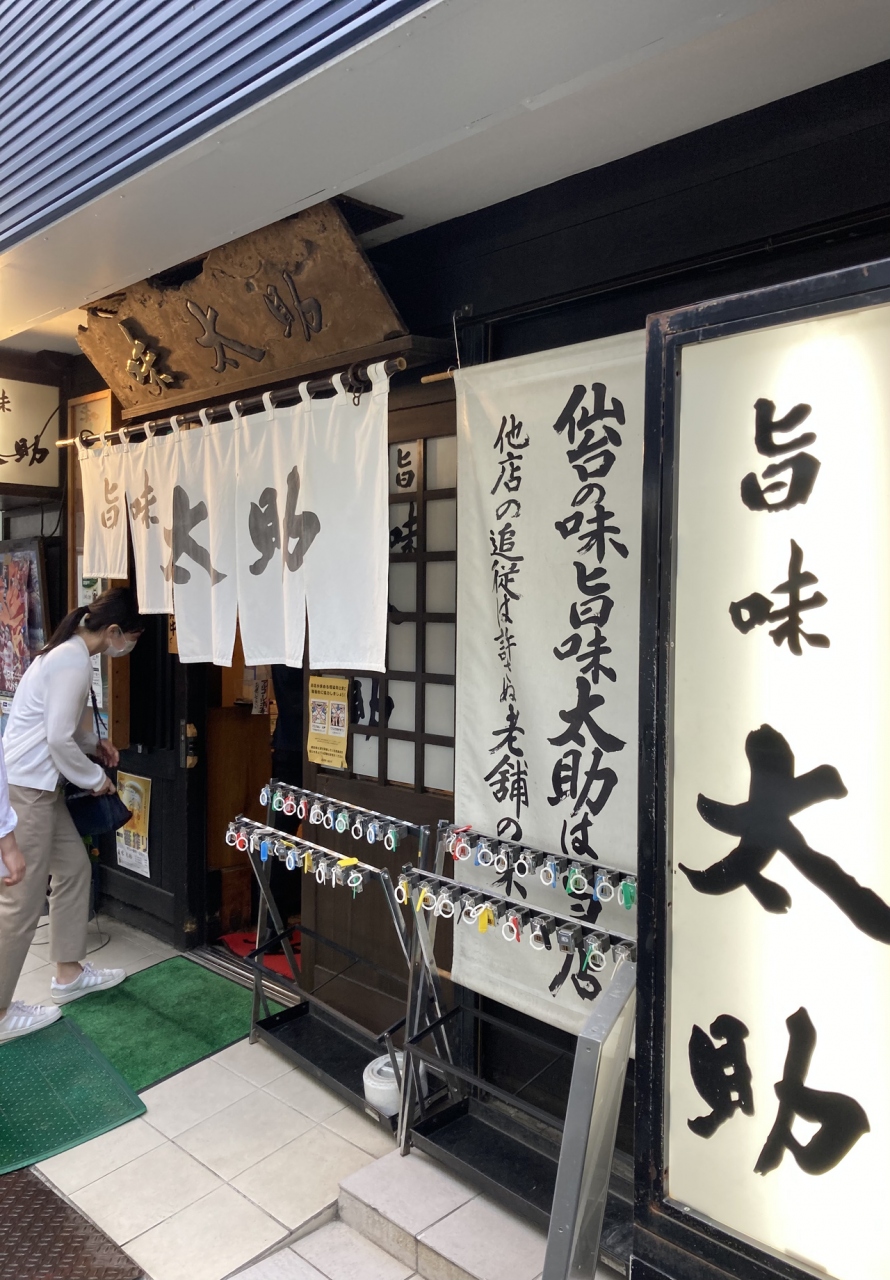 味太助
味
助
旨味
太助
旨
味
助
仙台の味旨味太助は当店
他店の追従は許さぬ老舗の味
旨
味
太
助